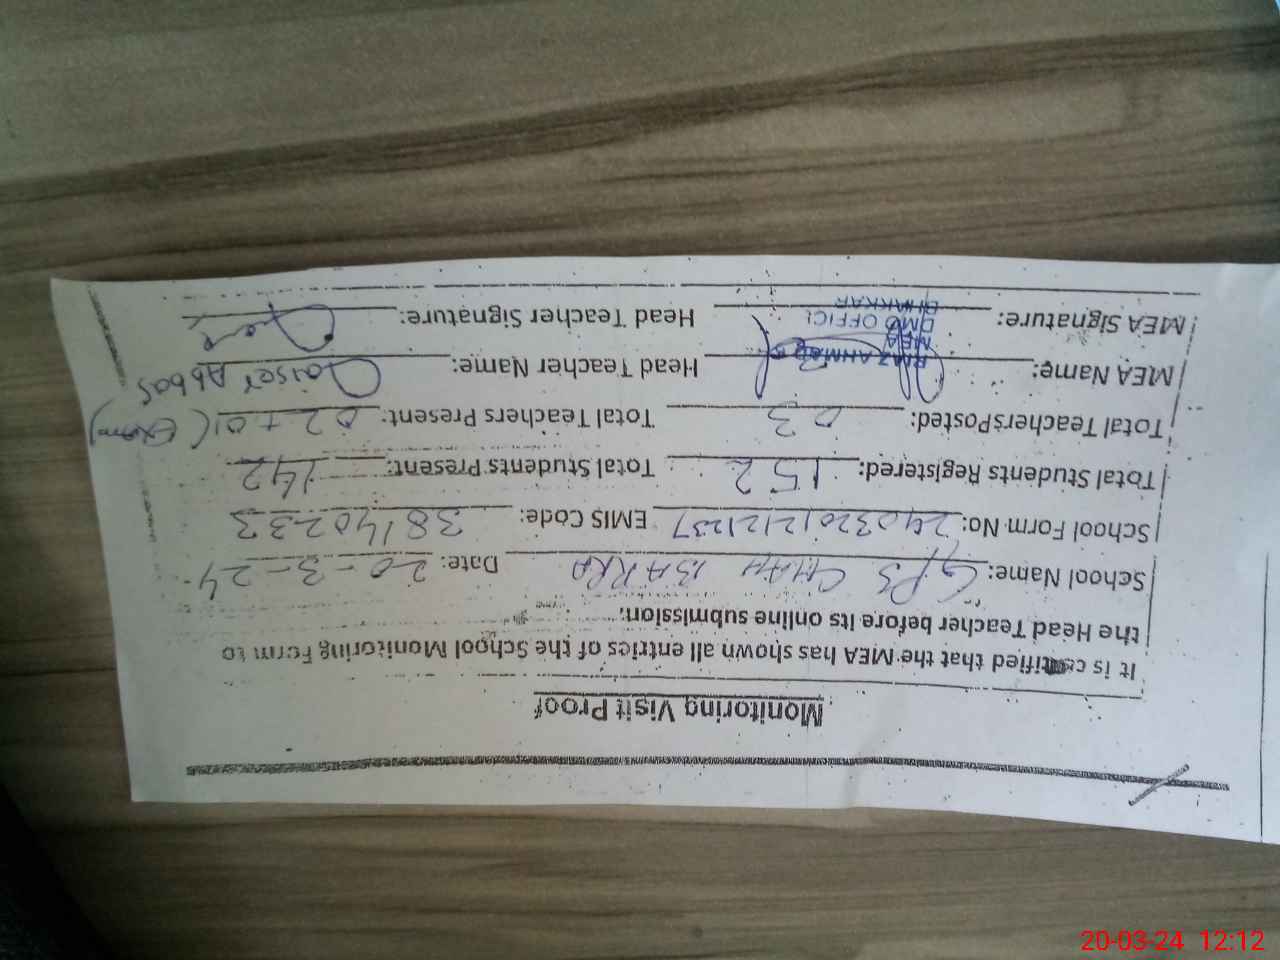 Monitoring Visit Proof
It is certified that the MEA has shown all entries of the School Monitoring Form to
the Head Teacher before its online submission.
School Name: GPS CHAH BARRA Date: 20-3-24
School Form No: 240320121237 EMIS Code: 38140233
Total Students Registered: 152 Total Students Present: 142
Total TeachersPosted: 03 Total Teachers Present: 02+01 (Exam)
MEA Name: Head Teacher Name: Qaiser Abbas
RIAZ AHMAD
MEA
DMO OFFICE
BHAKKAR
MEA Signature: Head Teacher Signature:
20-03-24 12:12